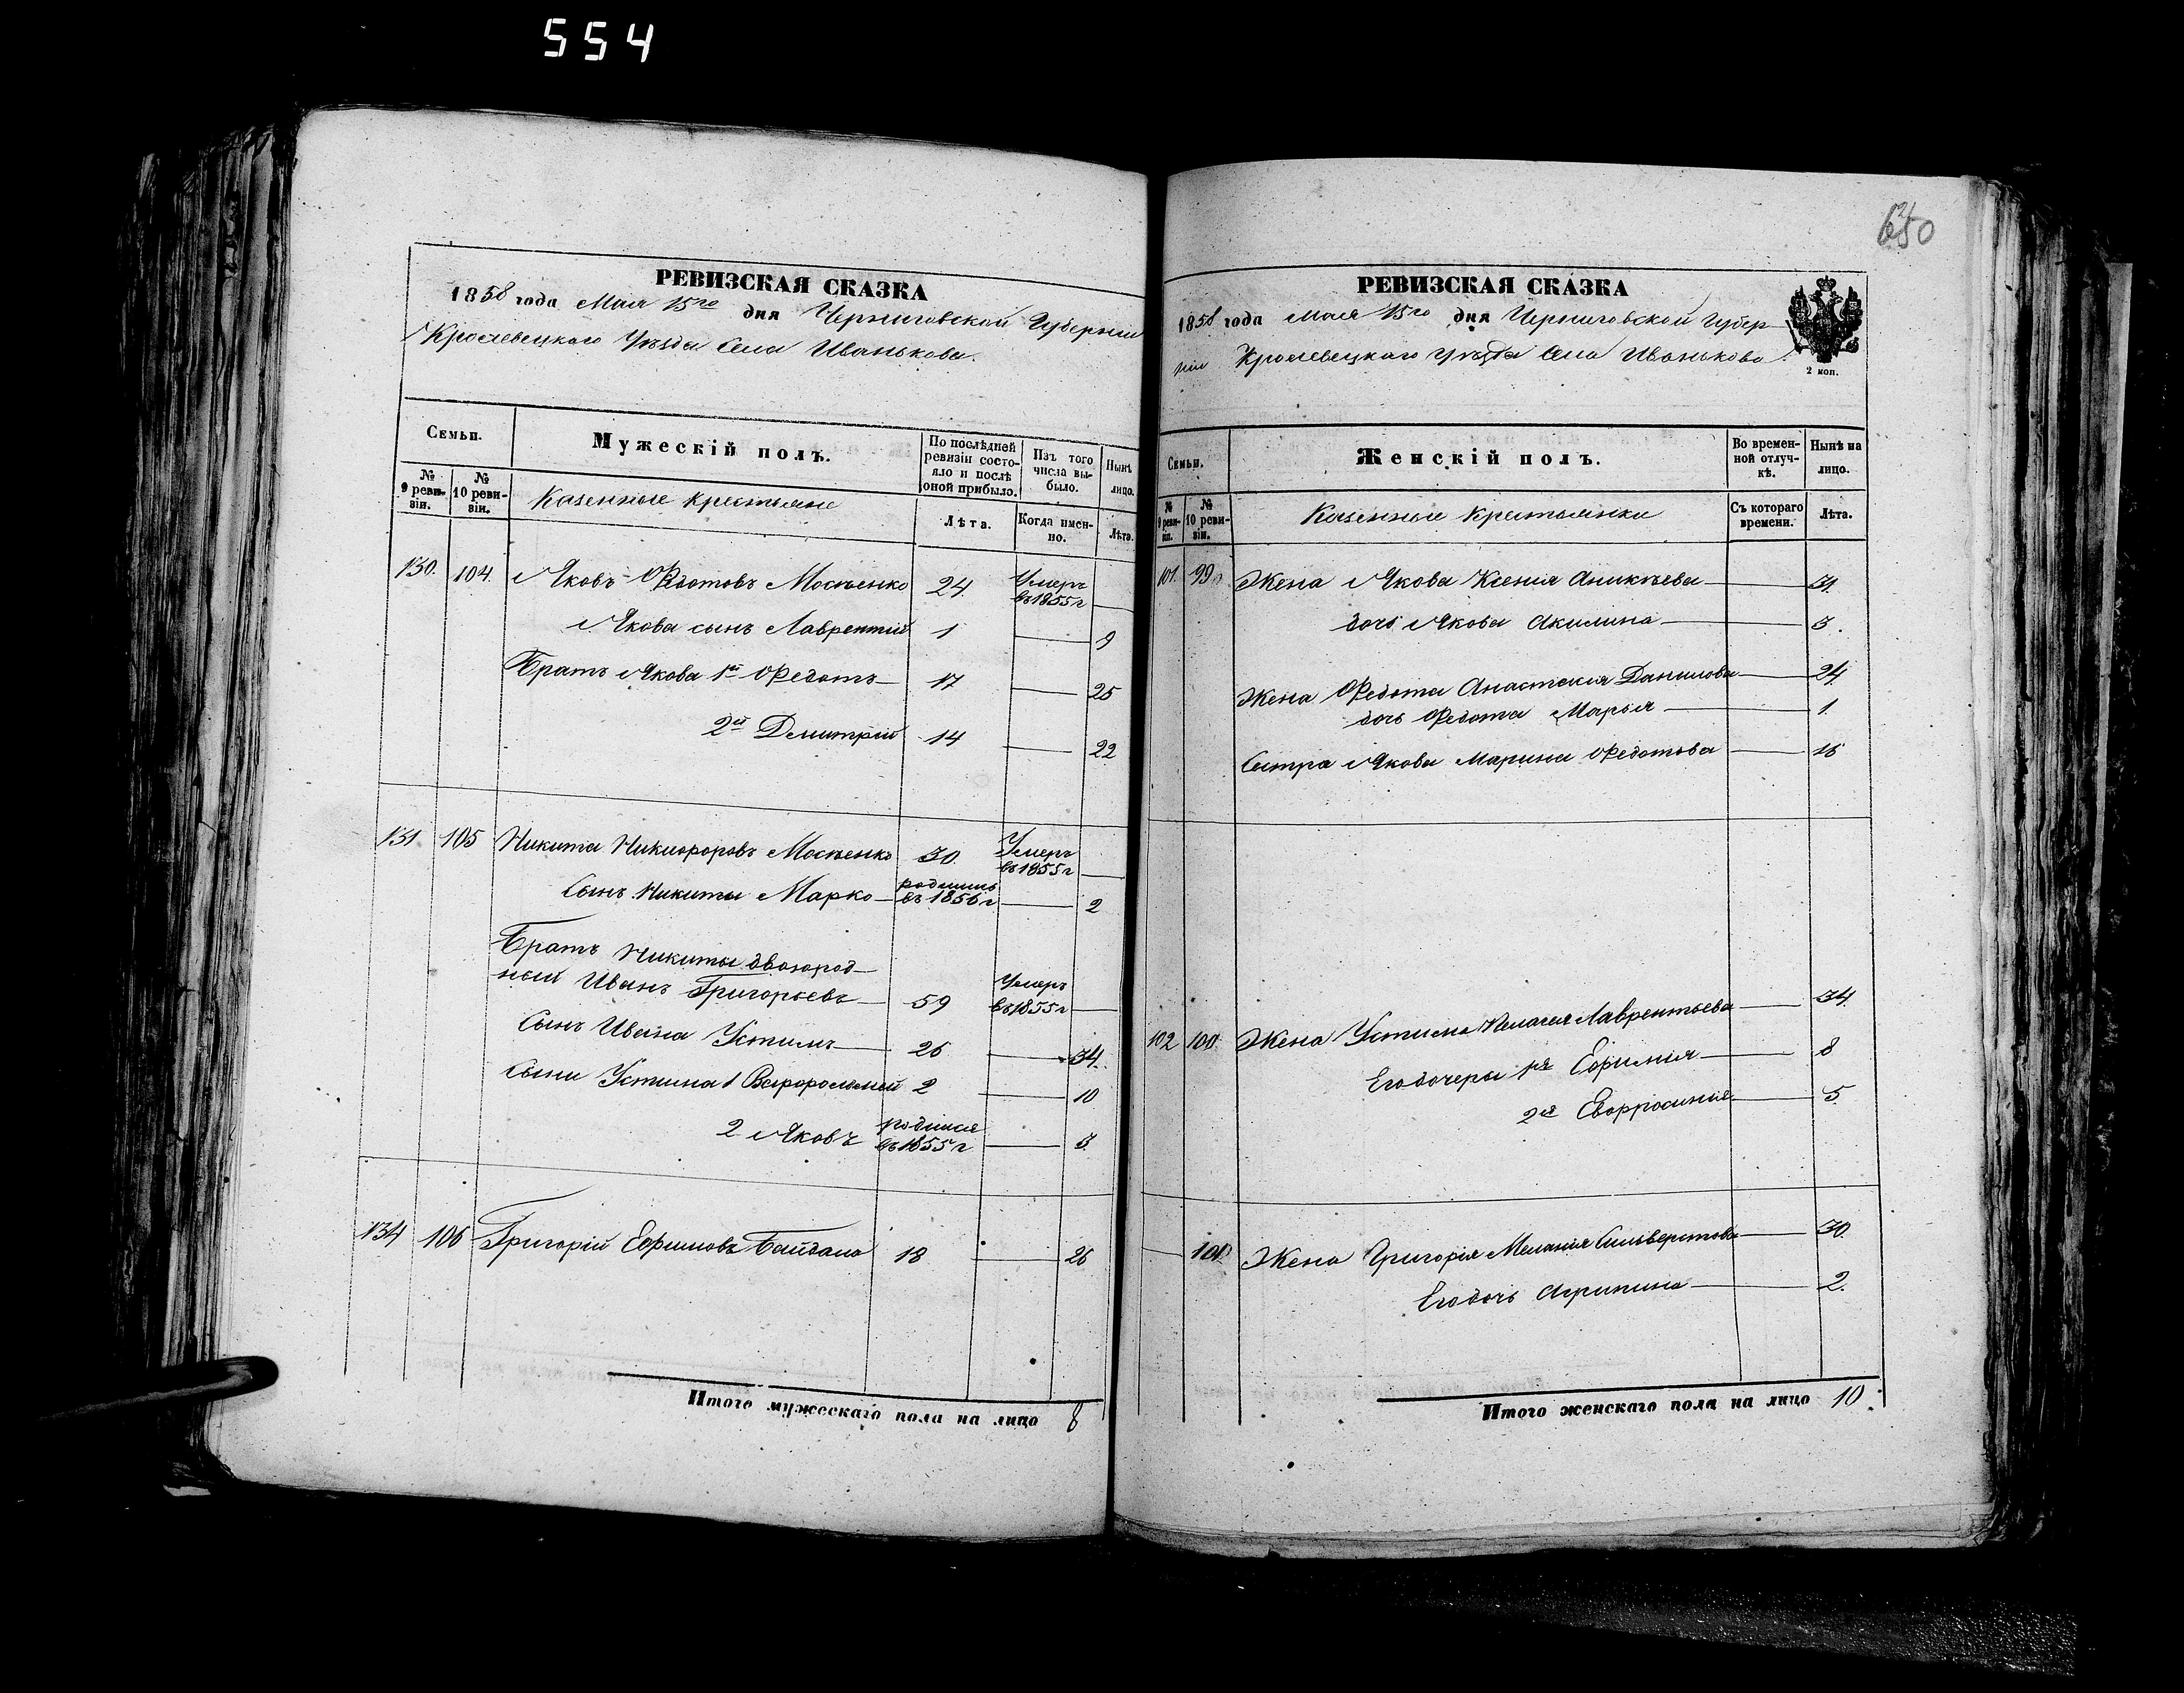 554
РЕВИЗСКАЯ СКАЗКА
1858 года Мая 15го дня Черниговской Губерніи
Кролевецкого Уѣзда Села Иванькова.
Семьи.
Мужескій полъ.
По послѣдней ревизіи состояло и послѣ оной прибыло.
Изъ того числа выбыло.
Нынѣ лицо.
№ 9 ревизіи.
№ 10 ревизіи.
Казенные крестьяне
Лѣта.
Когда именно.
Лѣта.
130. 104. Яковъ Федотовъ Мосѣенко 24. Умеръ въ 1855 г —
Якова сынъ Лаврентій 1 — 9
Братъ Якова 1й Федотъ — 17 — 25
2й Дмитрій 14 — 22
131 105 Никита Никифоровъ Мосѣенко 30. Умеръ въ 1855 г —
Сынъ Никиты Марко — родился въ 1856 г — 2
Братъ Никиты двоюрод-
ный Иванъ Григорьевъ — 59 Умеръ въ 1855 г —
Сынъ Ивана Устимъ — 26 — 34.
Сыны Устина 1 Варфоломей 2 — 10
2 Яковъ родился въ 1855 г — 3.
134 106 Григорій Ефимовъ Байдала 18 — 26
Итого мужескаго пола на лицо 8
650
РЕВИЗСКАЯ СКАЗКА
1858 года Мая 15го дня Черниговской Губер-
ніи Кролевецкаго уѣзда Села Иванькова.
2 коп.
Семьи.
Женскій полъ.
Во временной отлучкѣ.
Нынѣ на лицо.
№ 9 ревизіи.
№ 10 ревизіи.
Казенные крестьянки
Съ котораго времени.
Лѣта.
101. 99 Жена Якова Ксенія Аникѣева — 31.
дочь Якова Акилина — 3.
Жена Федота Анастасія Данилова — 24.
дочь Федота Марья — 1.
Сестра Якова Марина Федотова — 16
102 100 Жена Устима Пелагея Лаврентьева — 34.
Его дочери 1я Ефимія — 8
2я Евфросинія — 5.
— 101 Жена Григорія Меланія Сильверстова — 30.
Его дочь Агрипина — 2.
Итого женскаго пола на лицо 10.